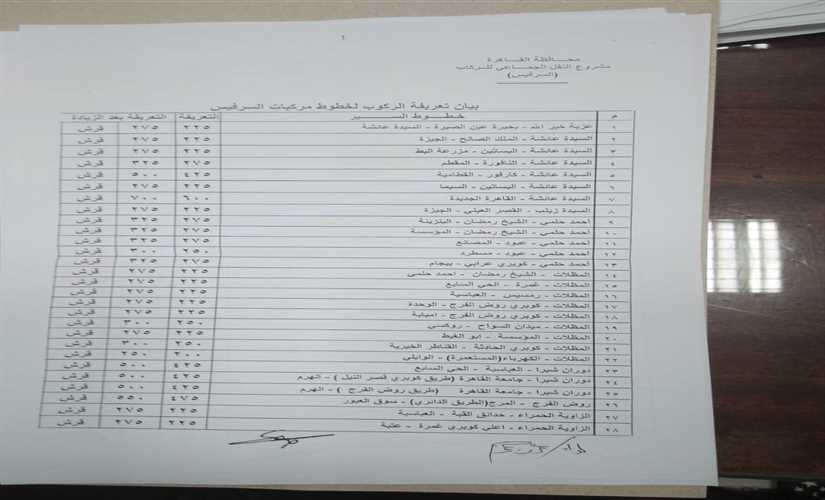 ١
محافظة القاهرة
مشروع النقل الجماعى للركاب
(السرفيس)
بيان تعريفة الركوب لخطوط مركبات السرفيس
م خطوط السير التعريفة التعريفة بعد الزيادة
١ عزبة خير الله - بحيرة عين الصيرة - السيدة عائشة ٢٢٥ ٢٧٥ قرش
٢ السيدة عائشة - الملك الصالح - الجيزة ٢٢٥ ٢٧٥ قرش
٣ السيدة عائشة - البساتين - مزرعة البط ٢٢٥ ٢٧٥ قرش
٤ السيدة عائشة - النافورة - المقطم ٢٧٥ ٣٢٥ قرش
٥ السيدة عائشة - كارفور - القطامية ٤٢٥ ٥٠٠ قرش
٦ السيدة عائشة - البساتين - السيما ٢٢٥ ٢٧٥ قرش
٧ السيدة عائشة - القاهرة الجديدة ٦٠٠ ٧٠٠ قرش
٨ السيدة زينب - القصر العيني - الجيزة ٢٢٥ ٢٧٥ قرش
٩ أحمد حلمي - الشيخ رمضان - البنزينة ٢٧٥ ٣٢٥ قرش
١٠ أحمد حلمي - الشيخ رمضان - المؤسسة ٢٧٥ ٣٢٥ قرش
١١ أحمد حلمي - عبود - المصانع ٢٧٥ ٣٢٥ قرش
١٢ أحمد حلمي - عبود - مسطرد ٢٥٠ ٣٠٠ قرش
١٣ أحمد حلمي - كوبري عرابي - بيجام ٢٧٥ ٣٢٥ قرش
١٤ المظلات - الشيخ رمضان - احمد حلمي ٢٢٥ ٢٧٥ قرش
١٥ المظلات - غمرة - الحي السابع ٢٢٥ ٢٧٥ قرش
١٦ المظلات - رمسيس - العباسية ٢٢٥ ٢٧٥ قرش
١٧ المظلات - كوبري روض الفرج - الوحدة ٢٢٥ ٢٧٥ قرش
١٨ المظلات - كوبري روض الفرج - امبابة ٢٢٥ ٢٧٥ قرش
١٩ المظلات - ميدان السواح - روكسي ٢٥٠ ٣٠٠ قرش
٢٠ المظلات - المؤسسة - ابو الغيط ٢٢٥ ٢٧٥ قرش
٢١ المظلات - كوبري الحادثة - القناطر الخيرية ٢٥٠ ٣٠٠ قرش
٢٢ المظلات - الكهرباء(المستعمرة) - الوايلي ٢٠٠ ٢٥٠ قرش
٢٣ دوران شبرا - العباسية - الحي السابع ٤٢٥ ٥٠٠ قرش
٢٤ دوران شبرا - جامعة القاهرة (طريق كوبري قصر النيل) - الهرم ٤٢٥ ٥٠٠ قرش
٢٥ دوران شبرا - جامعة القاهرة (طريق روض الفرج) - الهرم ٤٢٥ ٥٠٠ قرش
٢٦ روض الفرج - المرج(الطريق الدائري) - سوق العبور ٤٧٥ ٥٥٠ قرش
٢٧ الزاوية الحمراء - حدائق القبة - العباسية ٢٢٥ ٢٧٥ قرش
٢٨ الزاوية الحمراء - اعلي كوبري غمرة - عتبة ٢٢٥ ٢٧٥ قرش